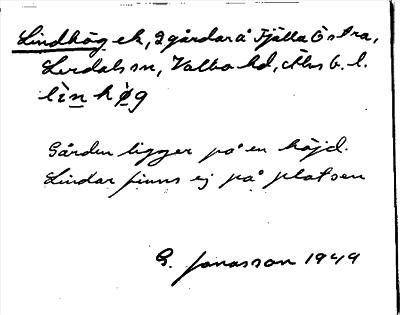 Lindhög ek, 2 gårdar å Fjälla Östra,
Lerdals sn, Valbo hd, Älvs b. l.
lìn hø̀g
Gården ligger på en höjd.
Lindar finns ej på platsen
G. Jonasson 1949